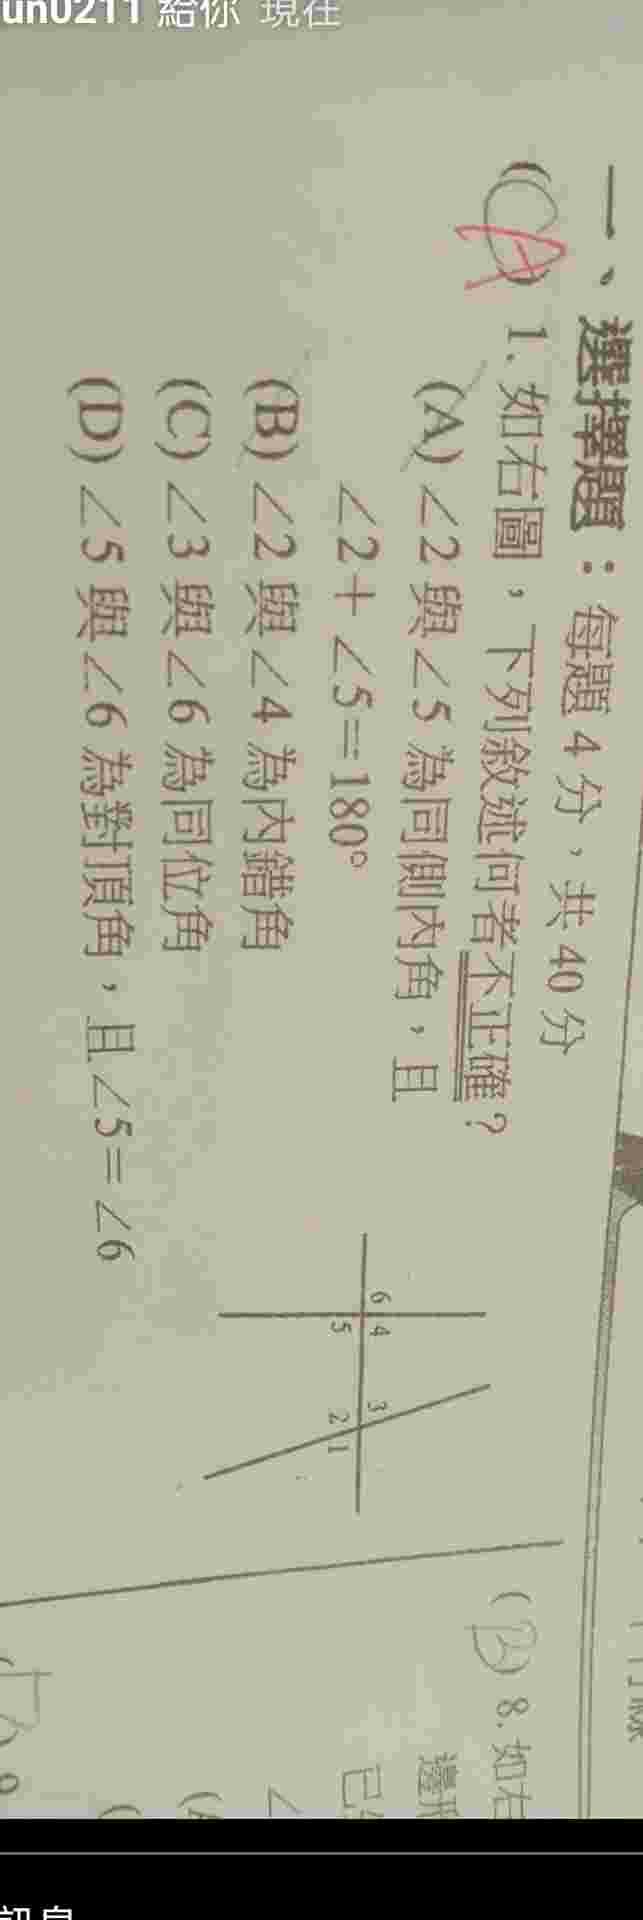 un0211 給你 現在
一、選擇題：每題 4 分，共 40 分
(C) A 1. 如右圖，下列敘述何者不正確？
(A) ∠2 與 ∠5 為同側內角，且
∠2＋∠5＝180°
(B) ∠2 與 ∠4 為內錯角
(C) ∠3 與 ∠6 為同位角
(D) ∠5 與 ∠6 為對頂角，且 ∠5＝∠6
6 4 3
5 2 1
(B) 8. 如右
邊
已
∠
(A
訊息